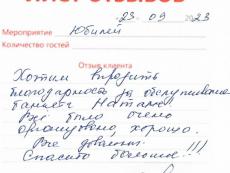 ЛИСТ ОТЗЫВОВ
23 09 2023
Мероприятие Юбилей
Количество гостей
Отзыв клиента
Хотим выразить
благодарность за обслуживание
банкета Наталье
Все было очень
организовано, хорошо.
Все довольны.
Спасибо большое!!!